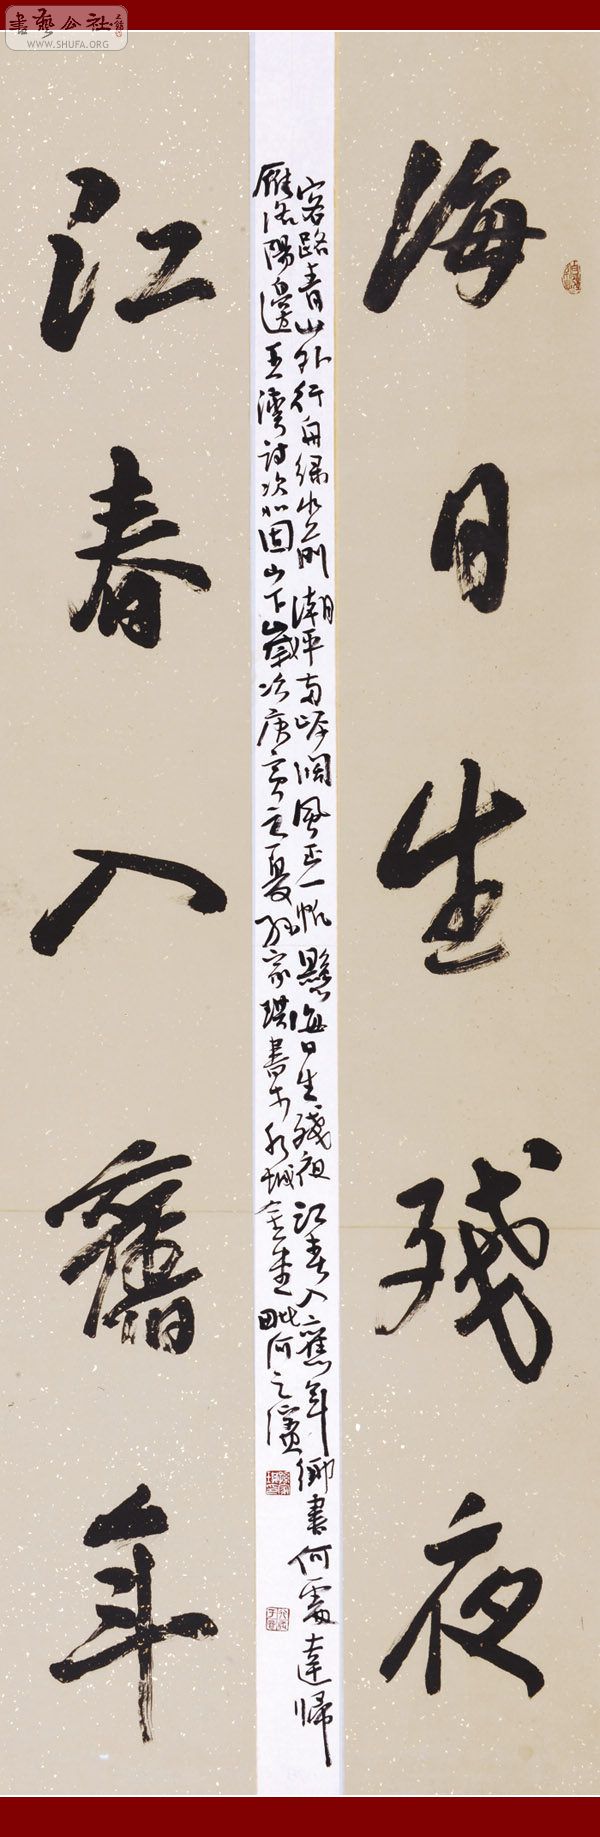 書藝公社
WWW.SHUFA.ORG
海日生残夜
客路青山外行舟綠水前潮平兩岸闊風正一帆懸海日生殘夜江春入舊年鄉書何處達歸
雁洛陽邊王灣詩次北固山下歲次庚寅之夏家珙書於城毗河之濱
江春入舊年